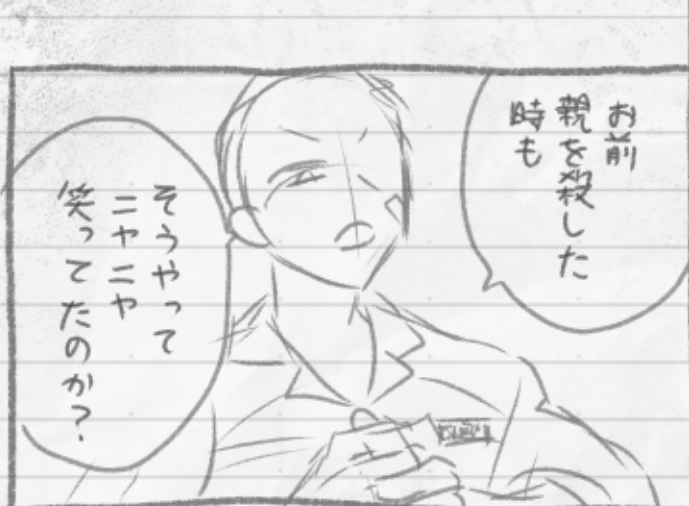 お前
親を殺した
時も
そうやって
ニヤニヤ
笑ってたのか？